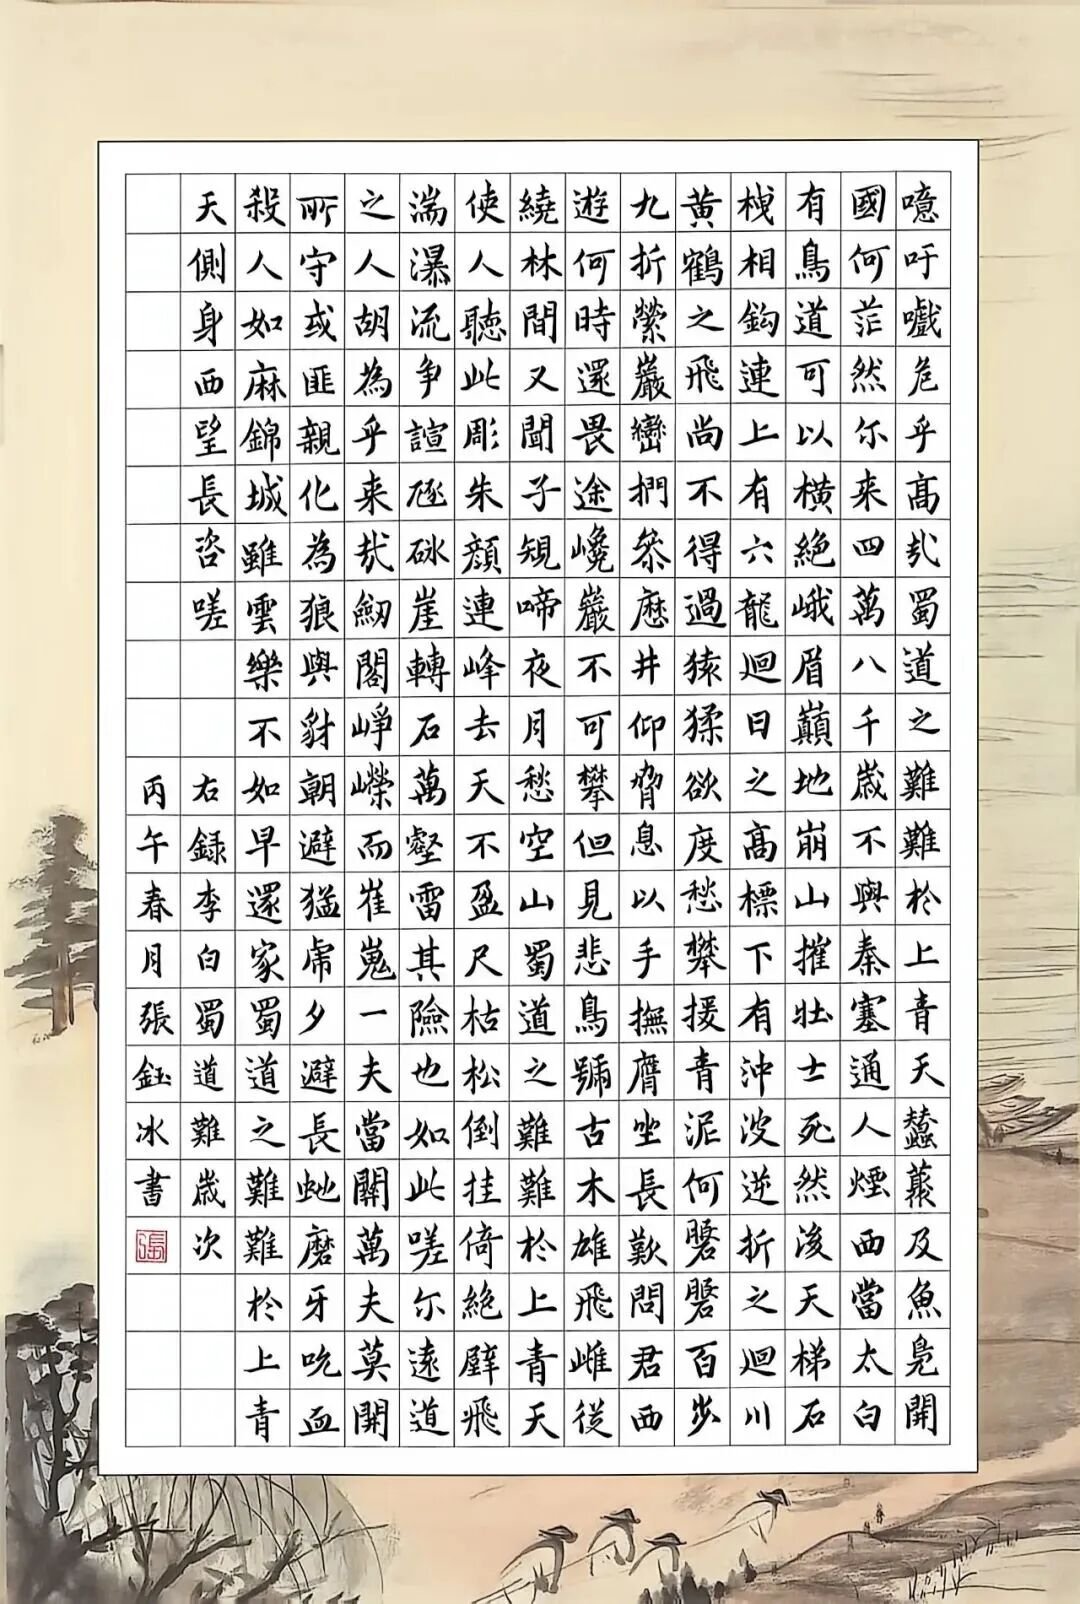 噫吁嚱危乎高哉蜀道之難難於上青天蠶叢及魚鳧開
國何茫然尔来四萬八千歲不與秦塞通人煙西當太白
有鳥道可以橫絕峨眉巔地崩山摧壯士死然後天梯石
棧相鈎連上有六龍迴日之高標下有沖波逆折之迴川
黃鶴之飛尚不得過猿猱欲度愁攀援青泥何盤盤百步
九折縈巖巒捫參歷井仰脅息以手撫膺坐長歎問君西
遊何時還畏途巉巖不可攀但見悲鳥號古木雄飛雌從
繞林間又聞子規啼夜月愁空山蜀道之難難於上青天
使人聽此彫朱顏連峰去天不盈尺枯松倒挂倚絕壁飛
湍瀑流争諠豗砯崖轉石萬壑雷其險也如此嗟尔遠道
之人胡為乎来哉劒閣崢嶸而崔嵬一夫當關萬夫莫開
所守或匪親化為狼與豺朝避猛虎夕避長虵磨牙吮血
殺人如麻錦城雖雲樂不如早還家蜀道之難難於上青
天側身西望長咨嗟 右録李白蜀道難歲次
丙午春月張鈺冰書
張